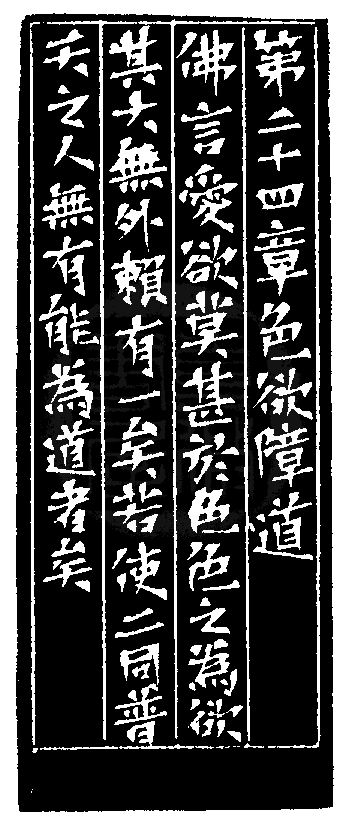 第二十四章色欲障道
佛言愛欲莫甚於色色之為欲
其大無外賴有一矣若使二同普
天之人無有能為道者矣